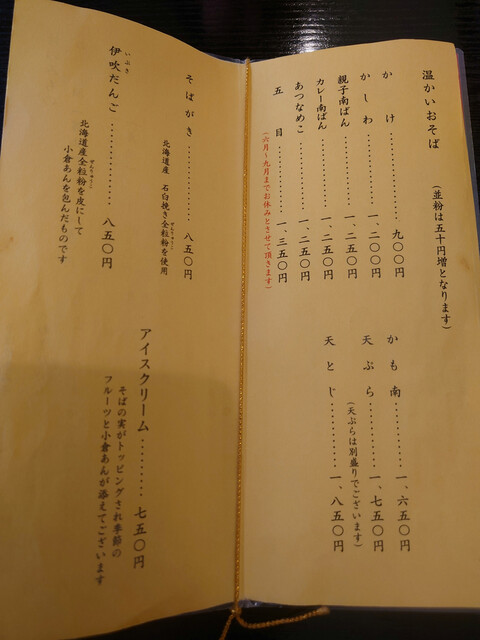 温かいおそば　（並粉は五十円増となります）
かけ………九〇〇円
かしわ………一、二〇〇円
親子南ばん………一、二五〇円
カレー南ばん………一、二五〇円
あつなめこ………一、二五〇円
五目………一、三五〇円
（六月〜九月までお休みとさせて頂きます）
かも南………一、六五〇円
天ぷら………一、七五〇円
（天ぷらは別盛りでございます）
天とじ………一、八五〇円
そばがき………八五〇円
北海道産　石臼挽き全粒粉を使用
ぜんりゅうこ
いぶき
伊吹だんご………八五〇円
ぜんりゅうこ
北海道産全粒粉を皮にして
小倉あんを包んだものです
アイスクリーム………七五〇円
そばの実がトッピングされ季節の
フルーツと小倉あんが添えてございます